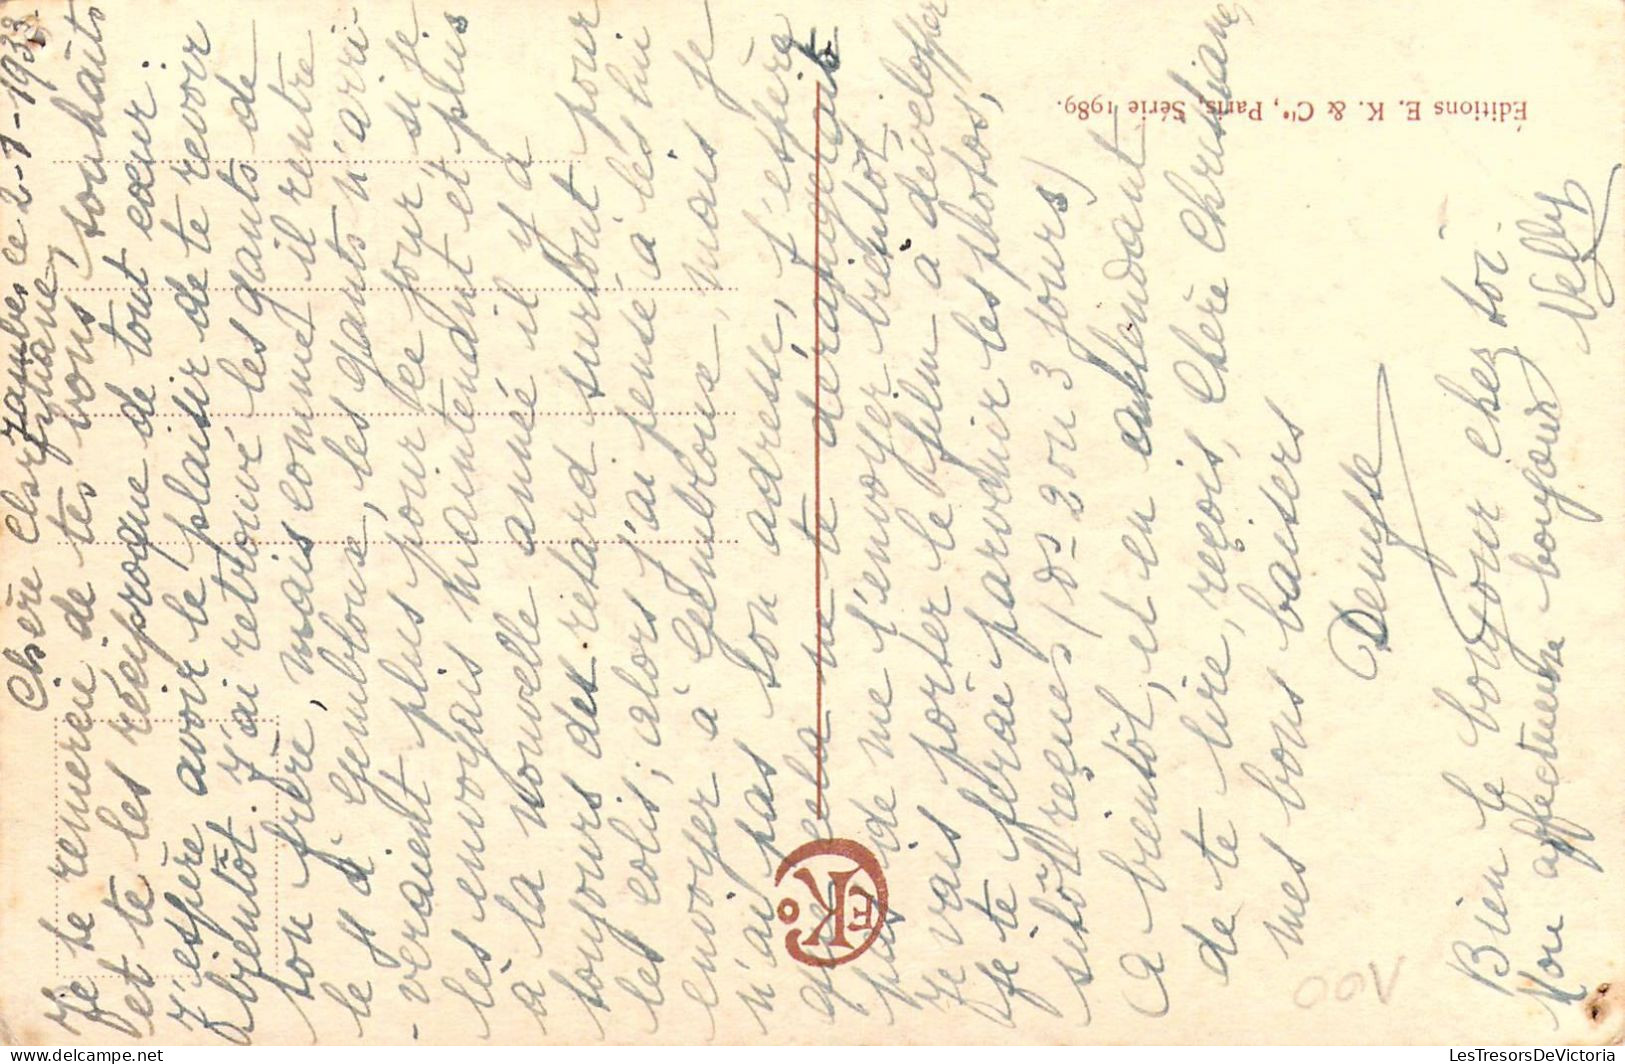 Jambes ce 2-1-1933.
Chère Christiane,
Je te remercie de tes bons souhaits
et te les réciproque de tout cœur.
J'espère avoir le plaisir de te revoir
bientôt. J'ai retrouvé les gants de
ton frère, mais comme il rentre
le 9 à Gembloux, les gants n'arri-
veraient plus pour ce jour si je
les envoyais maintenant et plus
à la nouvelle année il y a
toujours des retard surtout pour
les colis; alors j'ai pensé à les lui
envoyer à Gembloux, mais je
n'ai pas son adresse, j'espère
que cela ne te dérangerait
pas de me l'envoyer bientôt.
Je vais porter le film à développer
je te ferai parvenir les photos,
sitôt reçues (ds 2 ou 3 jours)
A bientôt, et en attendant
de te lire, reçois, Chère Christiane,
mes bons baisers
Denyse
Bien le bonjour chez toi.
Mon affectueux bonjour
Nelly
Éditions E. K. & Cie, Paris, Série 1989.
EK
100V
LesTresorsDeVictoria
delcampe.net